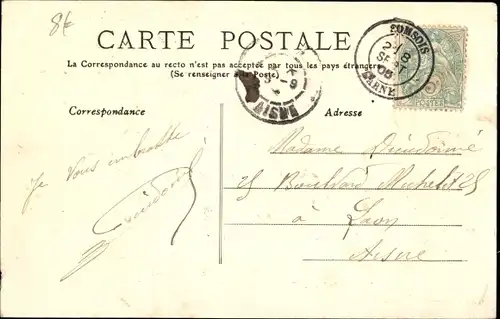 8f
CARTE POSTALE
La Correspondance au recto n'est pas acceptée par tous les pays étrangers
(Se renseigner à la Poste)
SOMSOIS
MARNE
AISNE
POSTES
Correspondance
Adresse
Je vous embrasse
Dieudonné
Madame Dieudonné
25 Boulevard Michelet 25
à Laon
Aisne